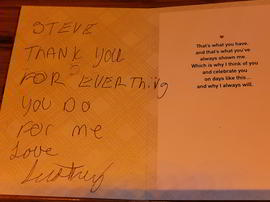 STEVE
THANK YOU
FOR EVERThing
YOU DO
FOR me
Love
That's what you have,
and that's what you've
always shown me
Which is why I think of you
and celebrate you
on days like this...
and why I always will.